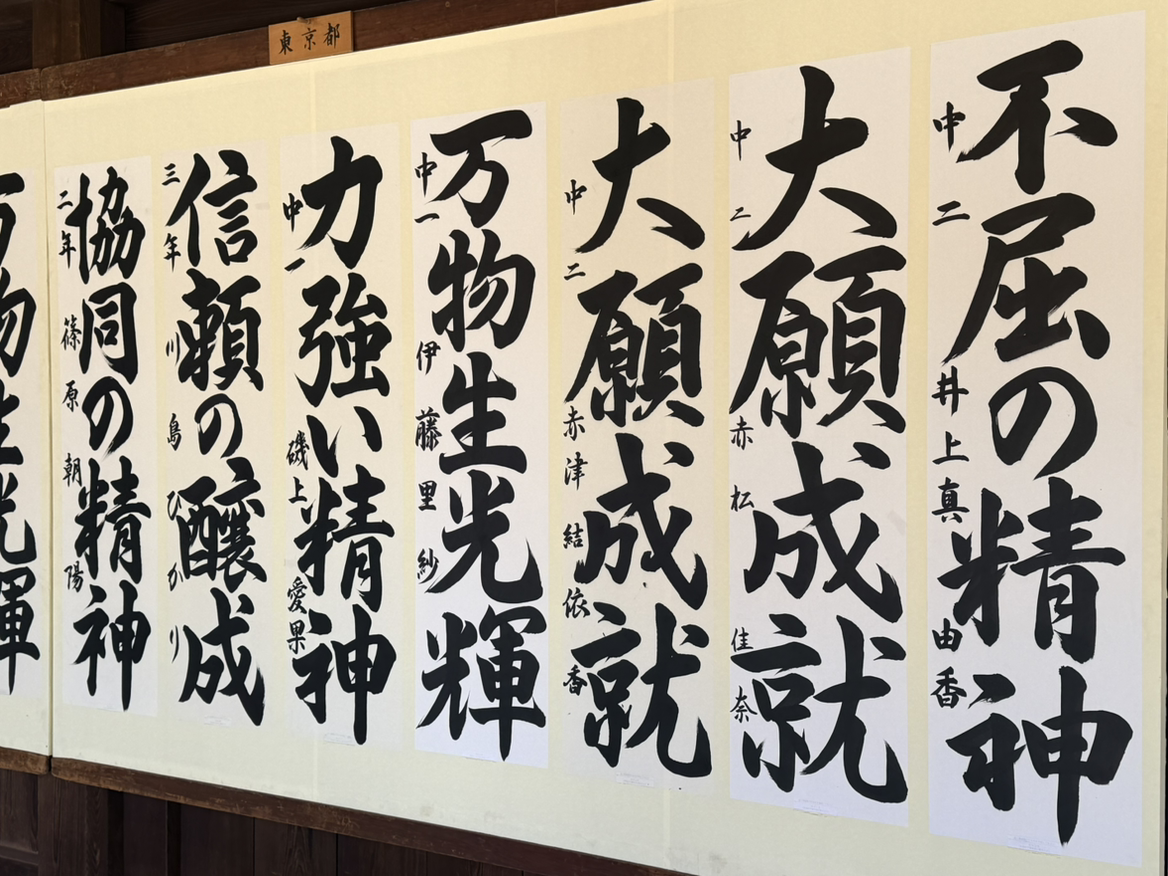 東京都
不屈の精神
中二 井上真由香
大願成就
中二 赤松佳奈
大願成就
中二 赤津結依香
万物生光輝
中一 伊藤里紗
力強い精神
中一 磯上愛果
信頼の醸成
三年 川島ひかり
協同の精神
二年 篠原朝陽
万物生光輝